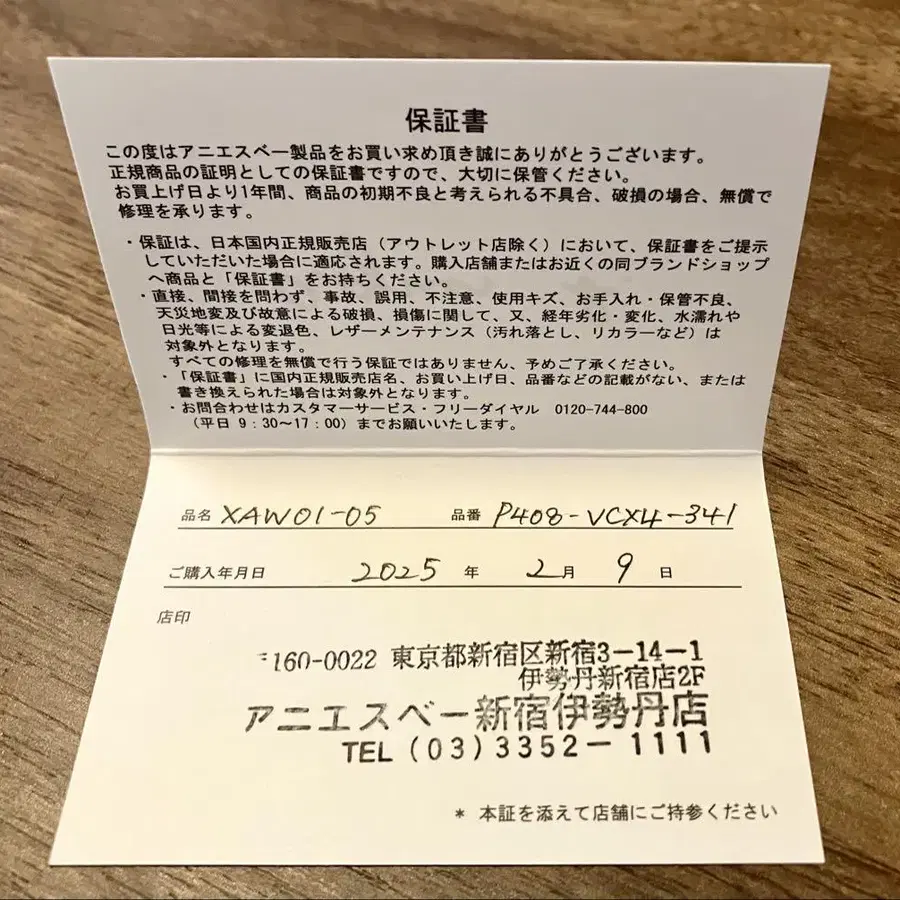 保証書
この度はアニエスベー製品をお買い求め頂き誠にありがとうございます。
正規商品の証明としての保証書ですので、大切に保管ください。
お買上げ日より1年間、商品の初期不良と考えられる不具合、破損の場合、無償で
修理を承ります。
・保証は、日本国内正規販売店（アウトレット店除く）において、保証書をご提示
していただいた場合に適応されます。購入店舗またはお近くの同ブランドショップ
へ商品と「保証書」をお持ちください。
・直接、間接を問わず、事故、誤用、不注意、使用キズ、お手入れ・保管不良、
天災地変及び故意による破損、損傷に関して、又、経年劣化・変化、水濡れや
日光等による変退色、レザーメンテナンス（汚れ落とし、リカラーなど）は
対象外となります。
すべての修理を無償で行う保証ではありません、予めご了承ください。
・「保証書」に国内正規販売店名、お買い上げ日、品番などの記載がない、または
書き換えられた場合は対象外となります。
・お問合わせはカスタマーサービス・フリーダイヤル 0120-744-800
（平日 9：30～17：00）までお願いいたします。
品名 XAW01-05 品番 P408-VCX4-341
ご購入年月日 2025 年 2 月 9 日
店印
〒160-0022 東京都新宿区新宿3－14－1
伊勢丹新宿店2F
アニエスベー新宿伊勢丹店
TEL（03）3352－1111
* 本証を添えて店舗にご持参ください